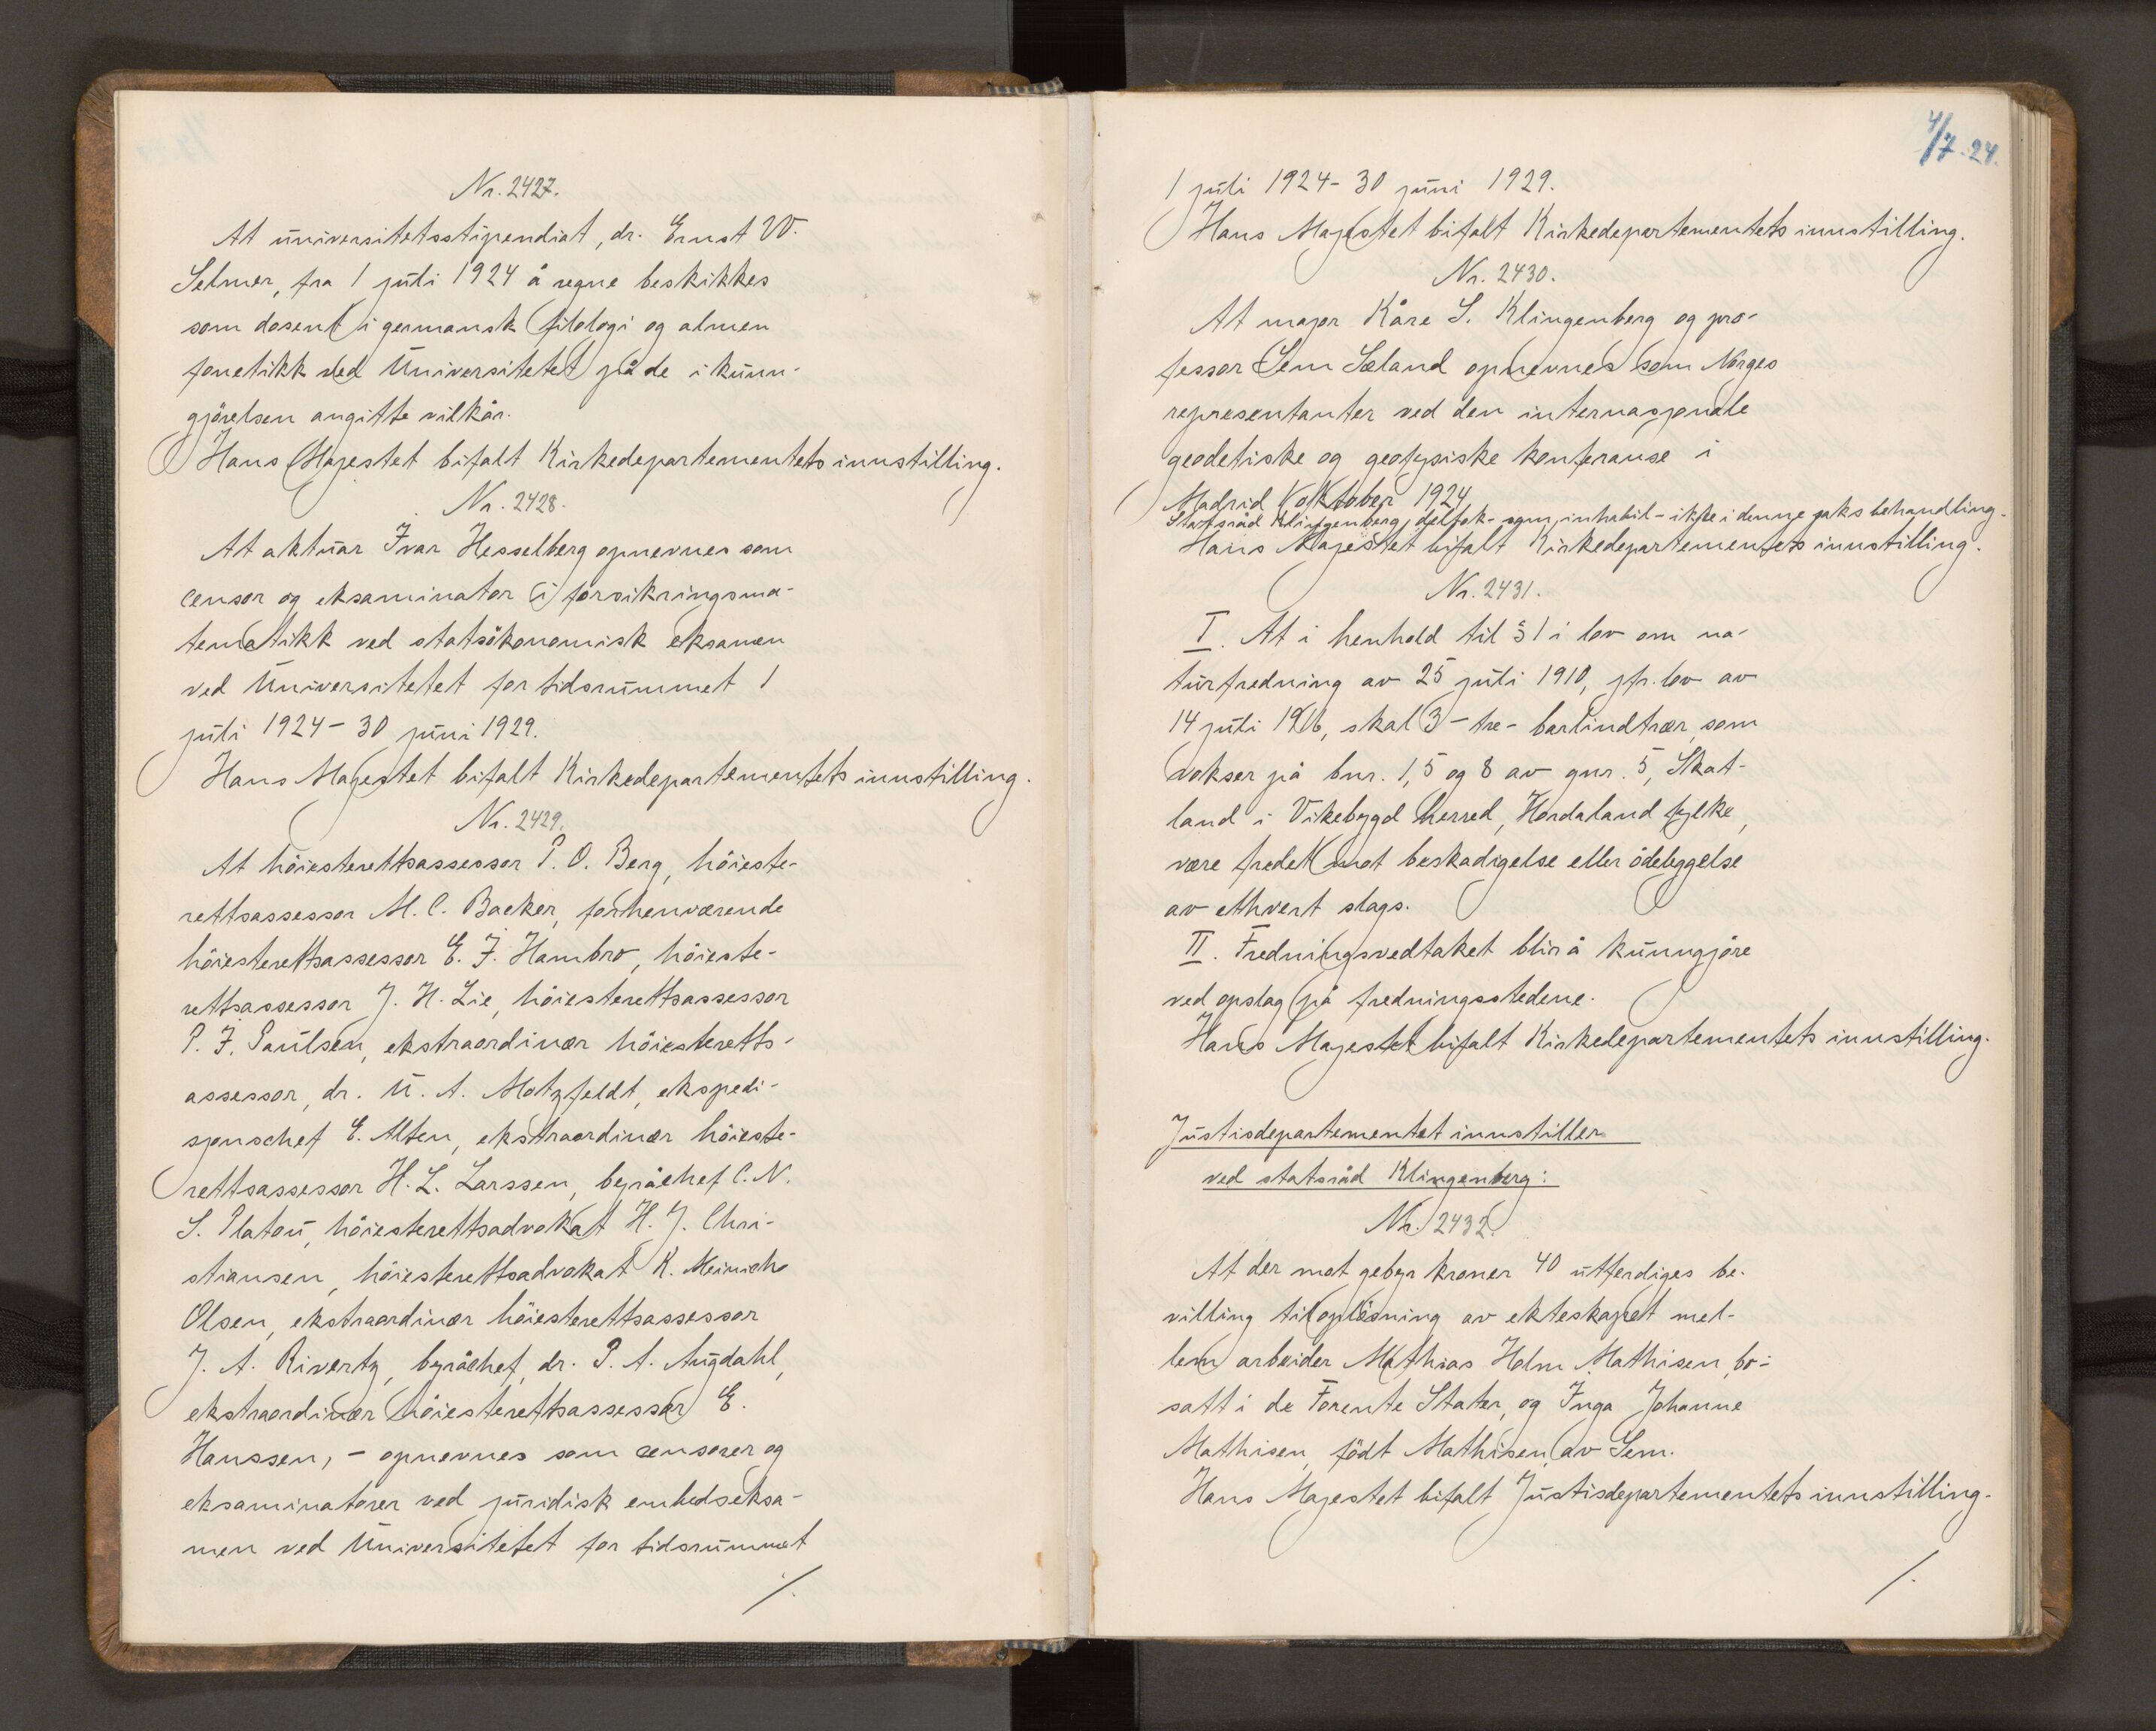 Nr. 2427.
At universitetsstipendiat, dr. Ernst W.
Selmer, fra 1 juli 1924 å regne beskikkes
som dosent i germansk filologi og almen
fonetikk ved Universitetet på de i kunn-
gjörelsen angitte vilkår.
Hans Majestet bifalt Kirkedepartementets innstilling.
Nr. 2428.
At aktuar Ivar Hesselberg opnevnes som
censor og eksaminator i forsikringsma-
tematikk ved statsökonomisk eksamen
ved Universitetet for tidsrummet 1
juli 1924 - 30 juni 1929.
Hans Majestet bifalt Kirkedepartementets innstilling.
Nr. 2429.
At höiesterettsassessor P. O. Berg, höieste-
rettsassessor M. C. Backer, forhenværende
höiesterettsassessor E. J. Hambro, höieste-
rettsassessor J. H. Lie, höiesterettsassessor
P. J. Paulsen, ekstraordinær höiesteretts-
assessor, dr. U. A. Motzfeldt, ekspedi-
sjonschef E. Alten, ekstraordinær höieste-
rettsassessor H. L. Larssen, byråchef C. N.
S. Platou, höiesterettsadvokat H. J. Chri-
stiansen, höiesterettsadvokat K. Meinich
Olsen, ekstraordinær höiesterettsassessor
J. A. Rivertz, byråchef, dr. P. A. Augdahl,
ekstraordinær höiesterettsassessor E.
Hanssen, - opnevnes som censorer og
eksaminatorer ved juridisk embedseksa-
men ved Universitetet for tidsrummet
/.
4/7.24.
1 juli 1924 - 30 juni 1929.
Hans Majestet bifalt Kirkedepartementets innstilling.
Nr. 2430.
At major Kåre S. Klingenberg og pro-
fessor Sem Sæland opnevnes som Norges
representanter ved den internasjonale
geodetiske og geofysiske konferanse i
Madrid oktober 1924.
Statsråd Klingenberg deltok - som inhabil - ikke i denne saks behandling.
Hans Majestet bifalt Kirkedepartementets innstilling.
Nr. 2431.
I. At i henhold til § 1 i lov om na-
turfredning av 25 juli 1910, jfr. lov av
14 juli 1916, skal 3 - tre - barlindtrær, som
vokser på bnr. 1, 5 og 8 av gnr. 5, Skat-
land i Vikebygd herred, Hordaland fylke,
være fredet mot beskadigelse eller ödeleggelse
av ethvert slags.
II. Fredningsvedtaket blir å kunngjöre
ved opslag på fredningsstedene.
Hans Majestet bifalt Kirkedepartementets innstilling.
Justisdepartementet innstiller
ved statsråd Klingenberg:
Nr. 2432.
At der mot gebyr kroner 40 utferdiges be-
villing til oplösning av ekteskapet mel-
lem arbeider Mathias Holm Mathisen, bo-
satt i de Forente Stater, og Inga Johanne
Mathisen, födt Mathisen, av Sem.
Hans Majestet bifalt Justisdepartementets innstilling.
/.